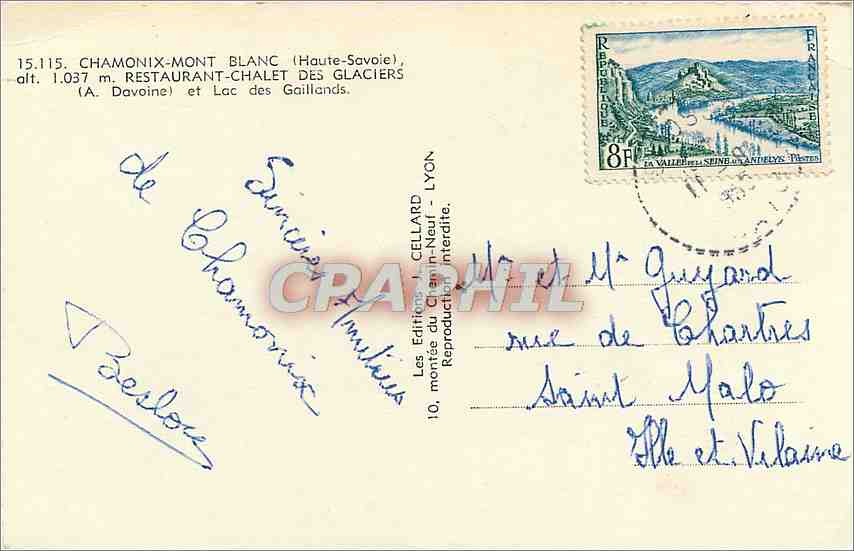 15.115. CHAMONIX-MONT BLANC (Haute-Savoie),
alt. 1.037 m. RESTAURANT-CHALET DES GLACIERS
(A. Davoine) et Lac des Gaillands.
REPUBLIQUE
FRANCAISE
8F
LA VALLEE DE LA SEINE AUX ANDELYS POSTES
Sincères Amitiés
de Chamonix
Les Editions J. CELLARD
10, montée du Chemin-Neuf - LYON
Reproduction interdite.
CPRAPHIL
Mr et Me Guyard
rue de Chartres
Saint Malo
Ille et Vilaine